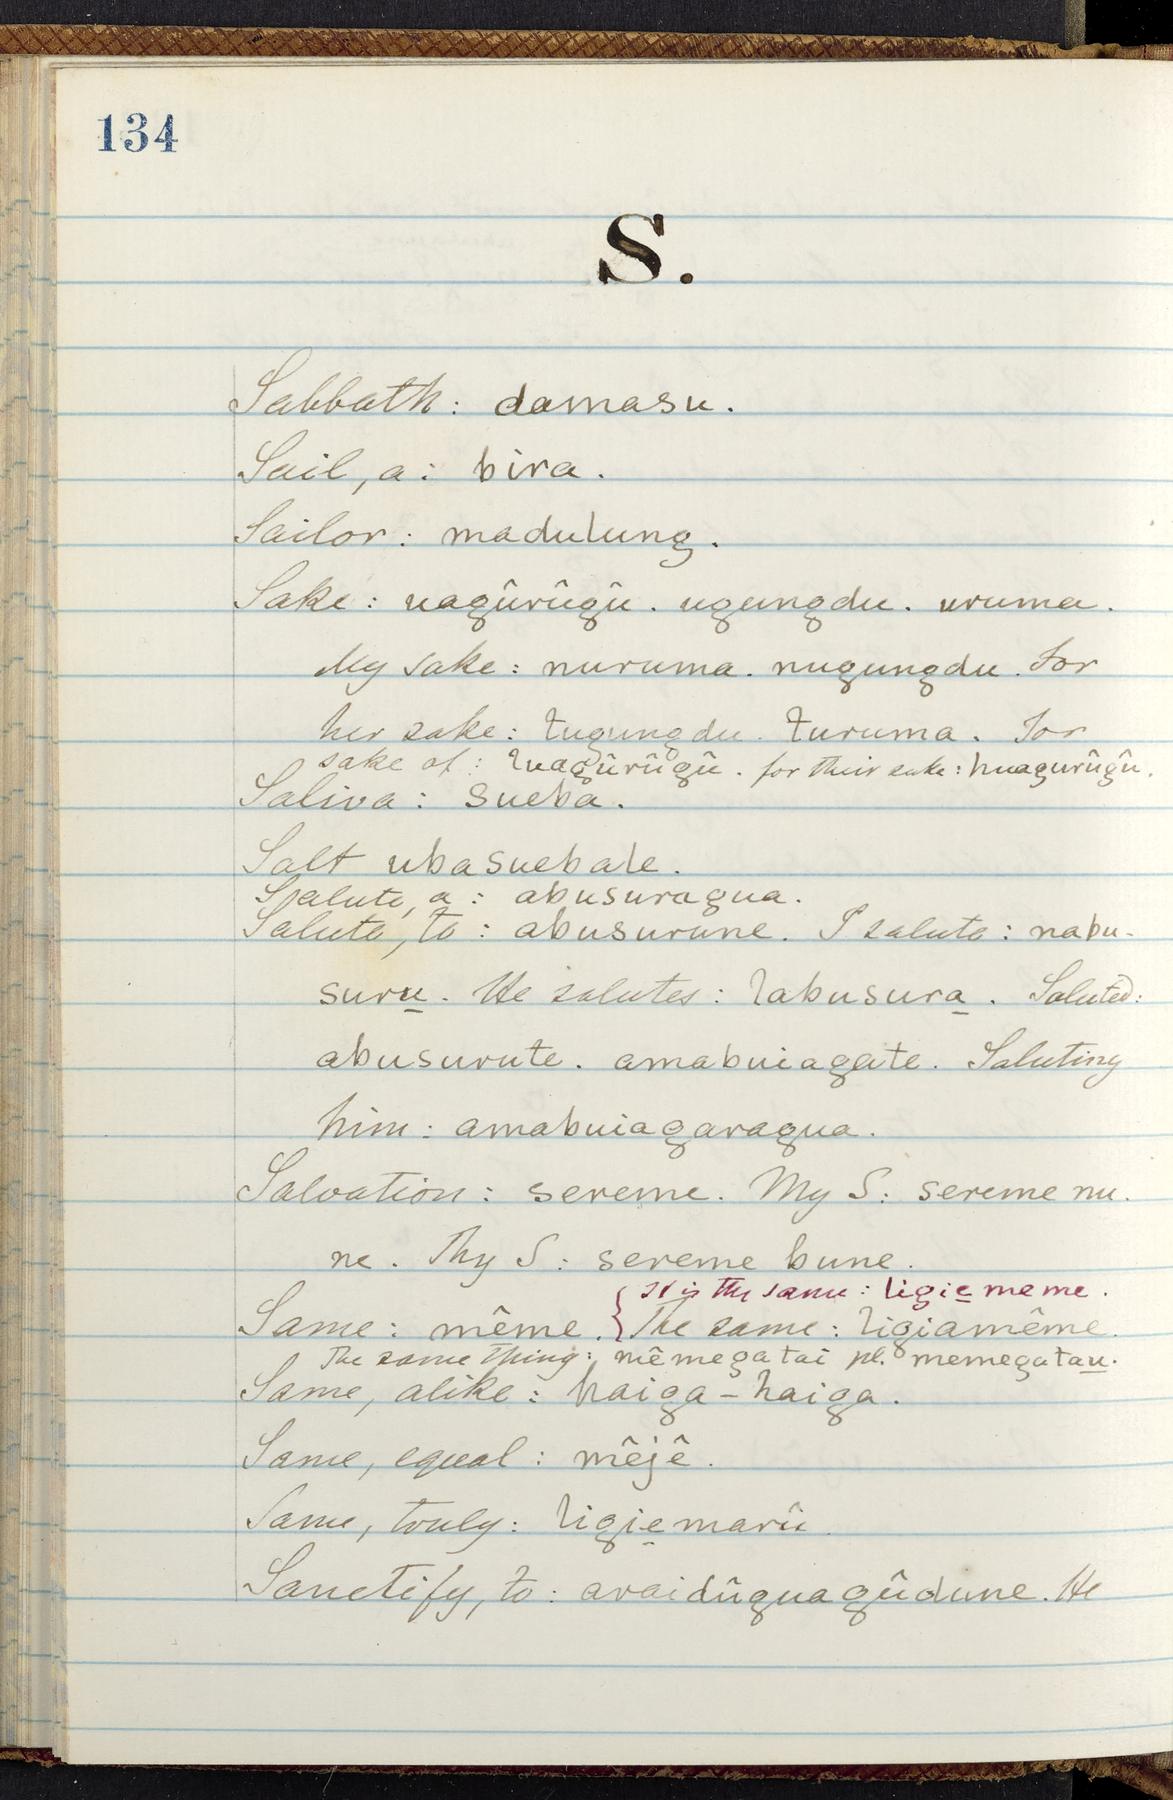 134
S.
Sabbath: damasu.
Sail, a: bira.
Sailor: madulung.
Sake: uagûrûgû. ugungdu. uruma.
My sake: nuruma. nugungdu. For
her sake: tugungdu. turuma. For
sake of: luagûrûgû. for their sake: huagurûgû.
Saliva: sueba.
Salt ubasuebale.
Salute, a: abusuragua.
Salute, to: abusurune. I salute: nabu-
suru. He salutes: labusura. Saluted:
abusurute. amabuiagate. Saluting
him: amabuiagaragua.
Salvation: sereme. My S: sereme nu.
ne. Thy S: sereme bune.
It is the same: ligie meme.
Same: même. The same: ligiamême.
The same thing: mêmegatai pl. memegatau.
Same, alike: haiga-haiga.
Same, equal: mêjê.
Same, truly: ligie marû.
Sanctify, to: araidûguagûdune. He